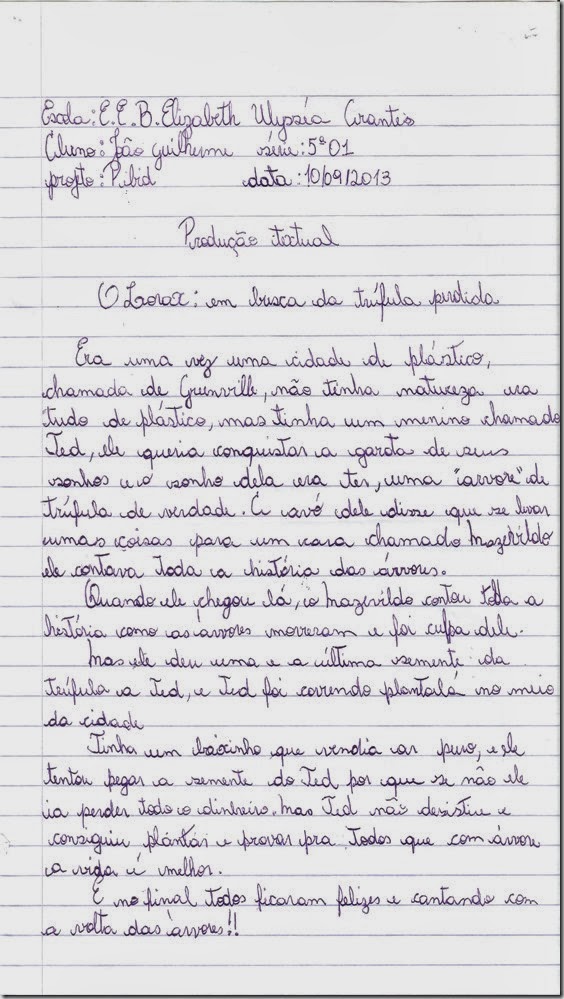 Escola: E.E.B. Elizabeth Ulysséa Arantes
Aluno: João Guilherme série: 5º 01
projto: Pibid data: 10/09/2013
Produção textual
O Lorax: em busca da trúfula perdida
Era uma vez uma cidade de plástico,
chamada de Greenville, não tinha natureza era
tudo de plástico, mas tinha um menino chamado
Ted, ele queria conquistar a garota de seus
sonhos e o sonho dela era ter, uma "arvore" de
trúfula de verdade. A avó dele disse que se levar
umas coisas para um cara chamado Mazevildo
ele contava toda a história das árvores.
Quando ele chegou lá, o Mazevildo contou toda a
história como as árvores morreram e foi culpa dele.
Mas ele deu uma e a última semente da
trúfula a Ted, e Ted foi correndo plantalá no meio
da cidade
Tinha um baixinho que vendia ar puro, e ele
tentou pegar a semente do Ted por que se não ele
ia perder todo o dinheiro. Mas Ted não desistiu e
conseguiu plantar e provar pra todos que com árvore
a vida é melhor.
E no final todos ficaram felizes e cantando com
a volta das árvores!!